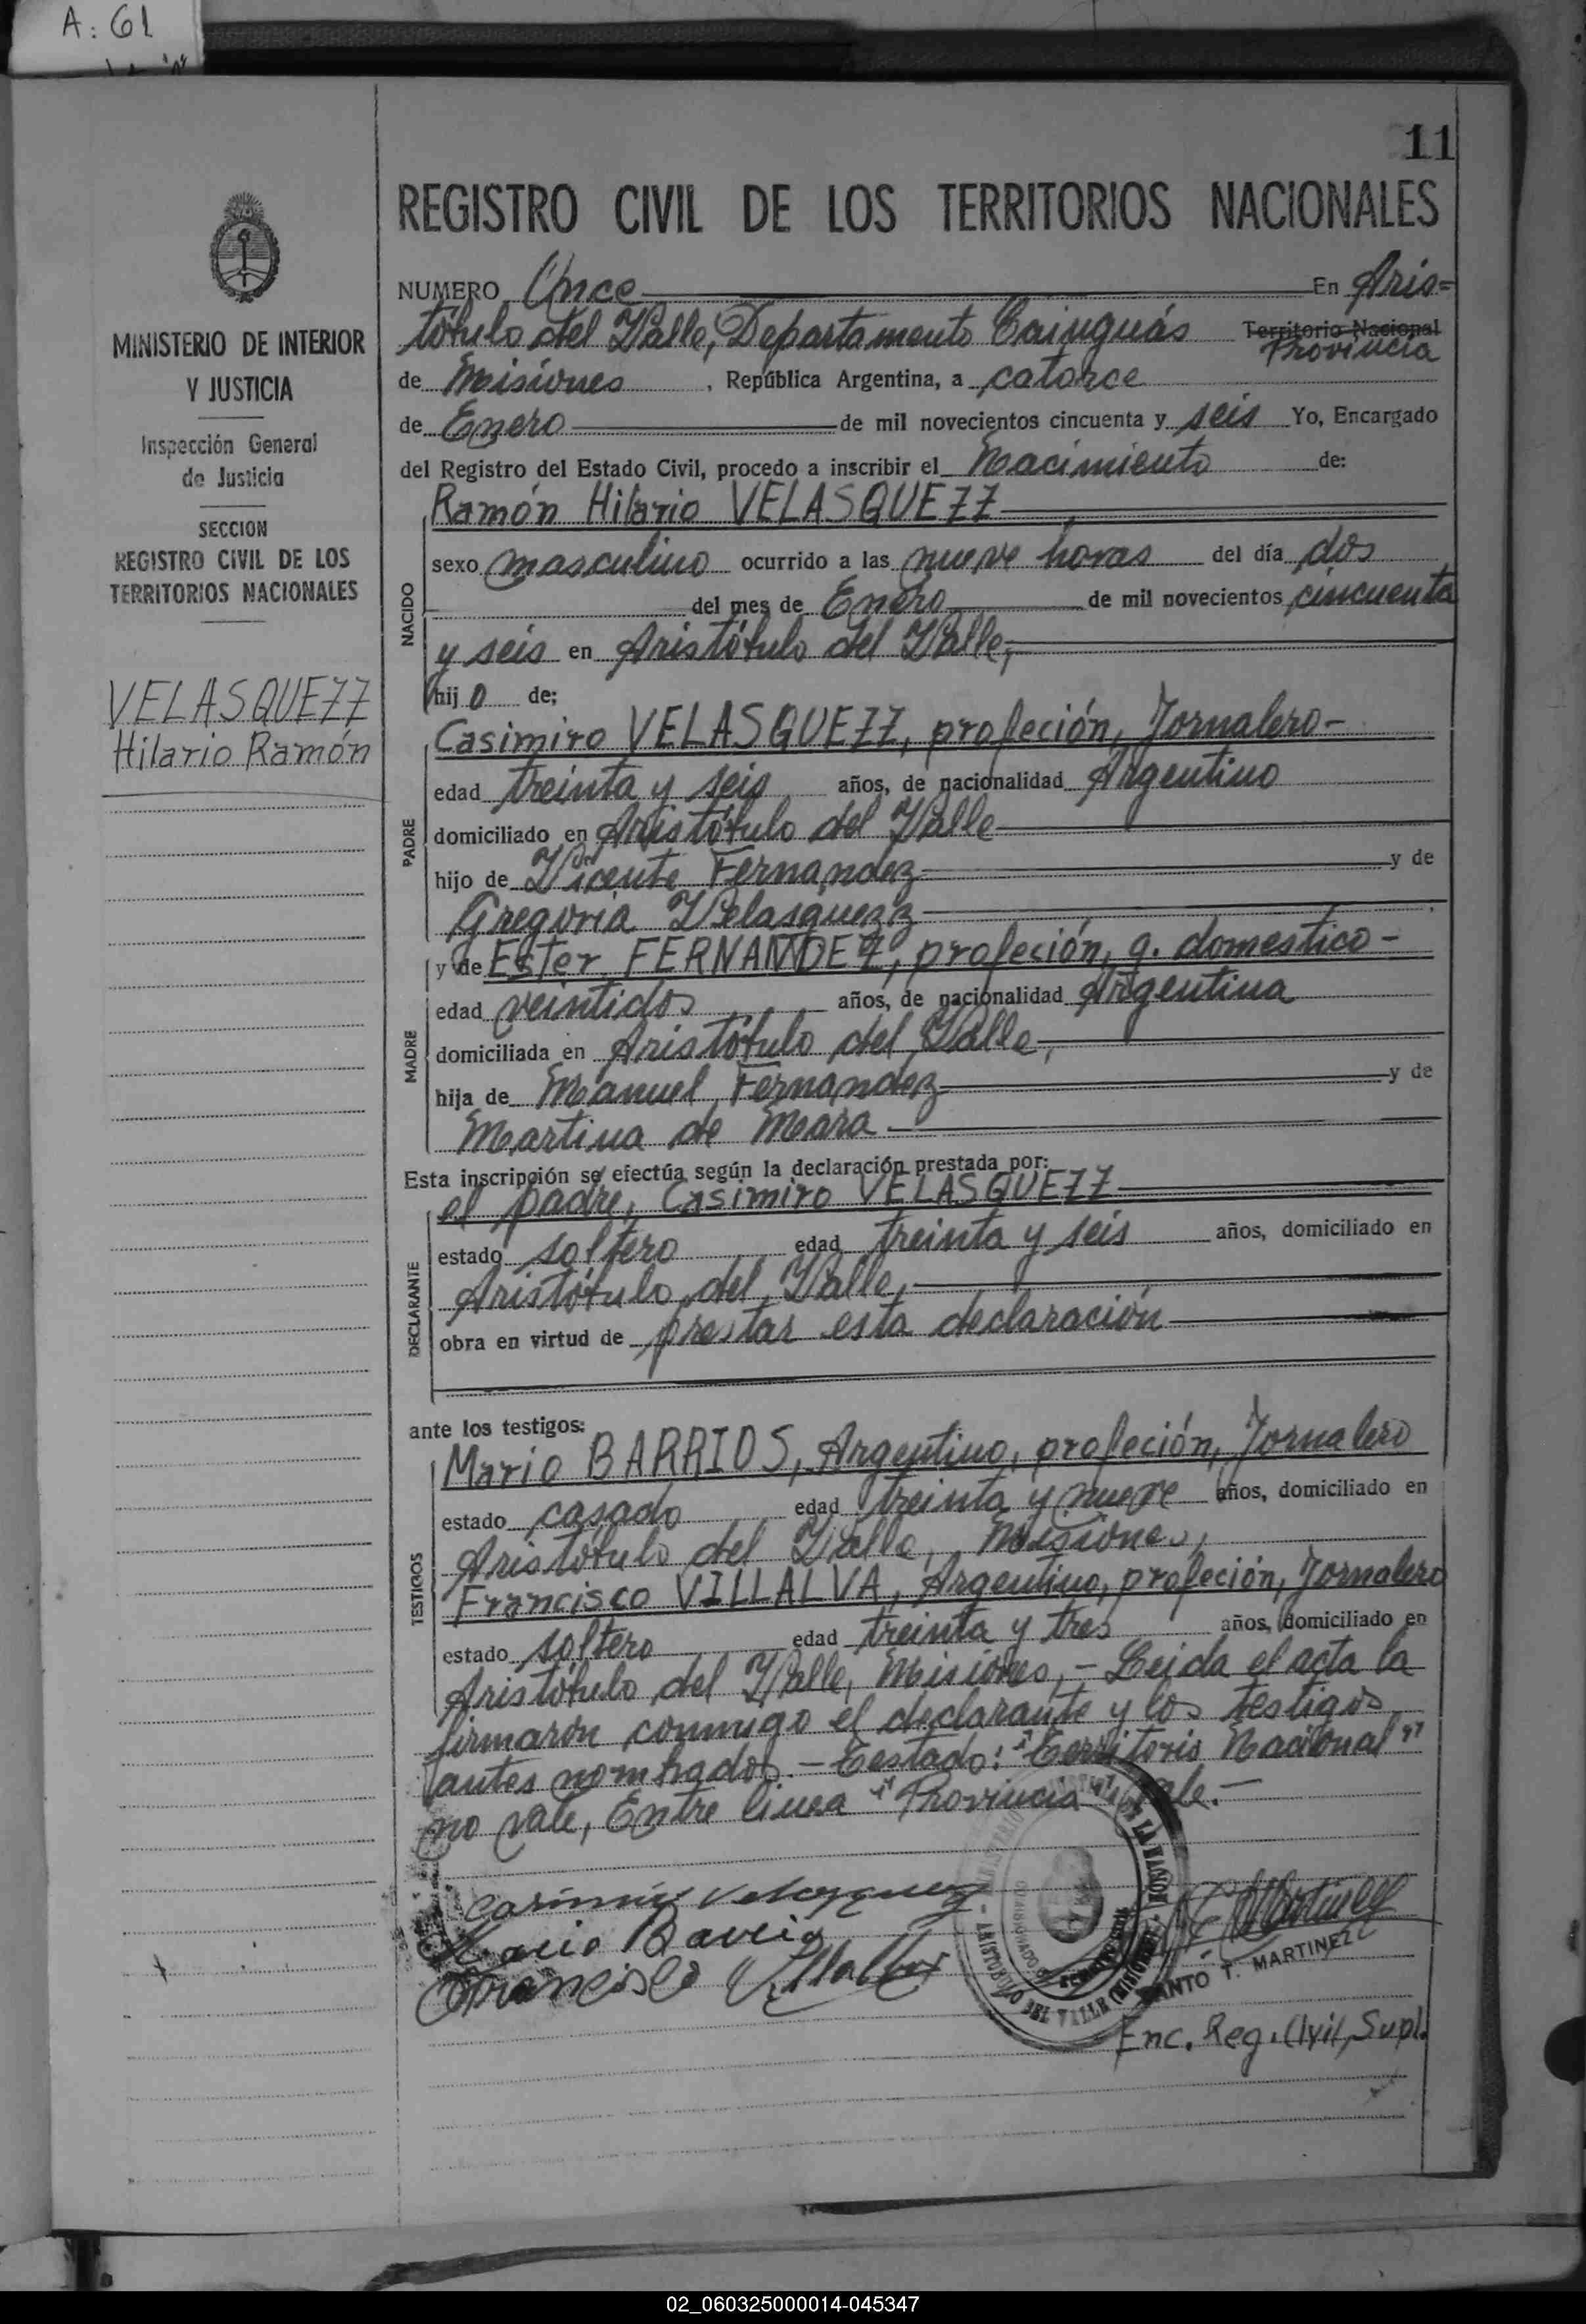 A: 61
11
MINISTERIO DE INTERIOR
Y JUSTICIA
Inspección General
de Justicia
SECCION
REGISTRO CIVIL DE LOS
TERRITORIOS NACIONALES
VELASQUEZZ
Hilario Ramón
REGISTRO CIVIL DE LOS TERRITORIOS NACIONALES
NUMERO Once En Aris=
tótulo del Valle, Departamento Cainguás Territorio Nacional
Provincia
de Misiones, República Argentina, a catorce
de Enero de mil novecientos cincuenta y seis Yo, Encargado
del Registro del Estado Civil, procedo a inscribir el Nacimiento de:
NACIDO
Ramón Hilario VELASQUEZZ
sexo masculino ocurrido a las nueve horas del día dos
del mes de Enero de mil novecientos cincuenta
y seis en Aristótulo del Valle,
hijo de;
PADRE
Casimiro VELASQUEZZ, profeción, Jornalero-
edad treinta y seis años, de nacionalidad Argentino
domiciliado en Aristótulo del Valle
hijo de Vicente Fernandez y de
Gregoria Velasquezz
MADRE
y de Ester FERNANDEZ, profeción, q. domestico-
edad veintidos años, de nacionalidad Argentina
domiciliada en Aristótulo del Valle,
hija de Manuel Fernandez y de
Martina de Mara
Esta inscripción se efectúa según la declaración prestada por:
DECLARANTE
el padre, Casimiro VELASQUEZZ
estado soltero edad treinta y seis años, domiciliado en
Aristótulo del Valle,
obra en virtud de prestar esta declaración
ante los testigos:
TESTIGOS
Mario BARRIOS, Argentino, profeción, Jornalero
estado casado edad treinta y nueve años, domiciliado en
Aristótulo del Valle, Misiones,
Francisco VILLALVA, Argentino, profeción, Jornalero
estado soltero edad treinta y tres años, domiciliado en
Aristótulo del Valle, Misiones,- Leida el acta la
firmaron conmigo el declarante y los testigos
antes nombrados.- Testado: "Territorio Nacional"
no vale, Entre linea "Provincia" vale.-
Casimiro Velasquez
Mario Barrio
Francisco Villalba
ARISTOBULO DEL VALLE (MISIONES)
SANTO T. MARTINEZ
Enc. Reg. Civil, Supl.
02_060325000014-045347